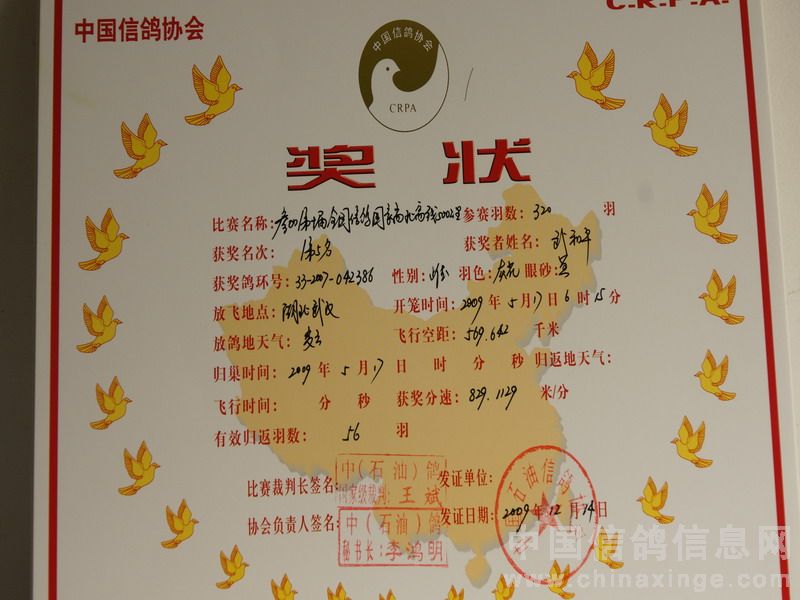 C.R.P.A.
中国信鸽协会
中国信鸽协会
CRPA
奖状
比赛名称:参加第十届全国信鸽国家南北500公里 参赛羽数:320 羽
获奖名次: 第5名 获奖者姓名: 和平
获奖鸽环号:33-2007-042386 性别: 羽色:灰花 眼砂:黄
放飞地点:湖北武汉 开笼时间:2009年5月17日6时15分
放鸽地天气:多云 飞行空距:569.642 千米
归巢时间:2009年5月17日 时 分 秒 归返地天气:
飞行时间: 分 秒 获奖分速:829.1129 米/分
有效归返羽数: 56 羽
比赛裁判长签名: 中(石油)鸽 国家级裁判:王斌 发证单位: 石油信鸽
协会负责人签名: 中(石油)鸽 秘书长:李鸿明 发证日期:2009年12月14日
中国信鸽信息网
www.chinaxinge.com